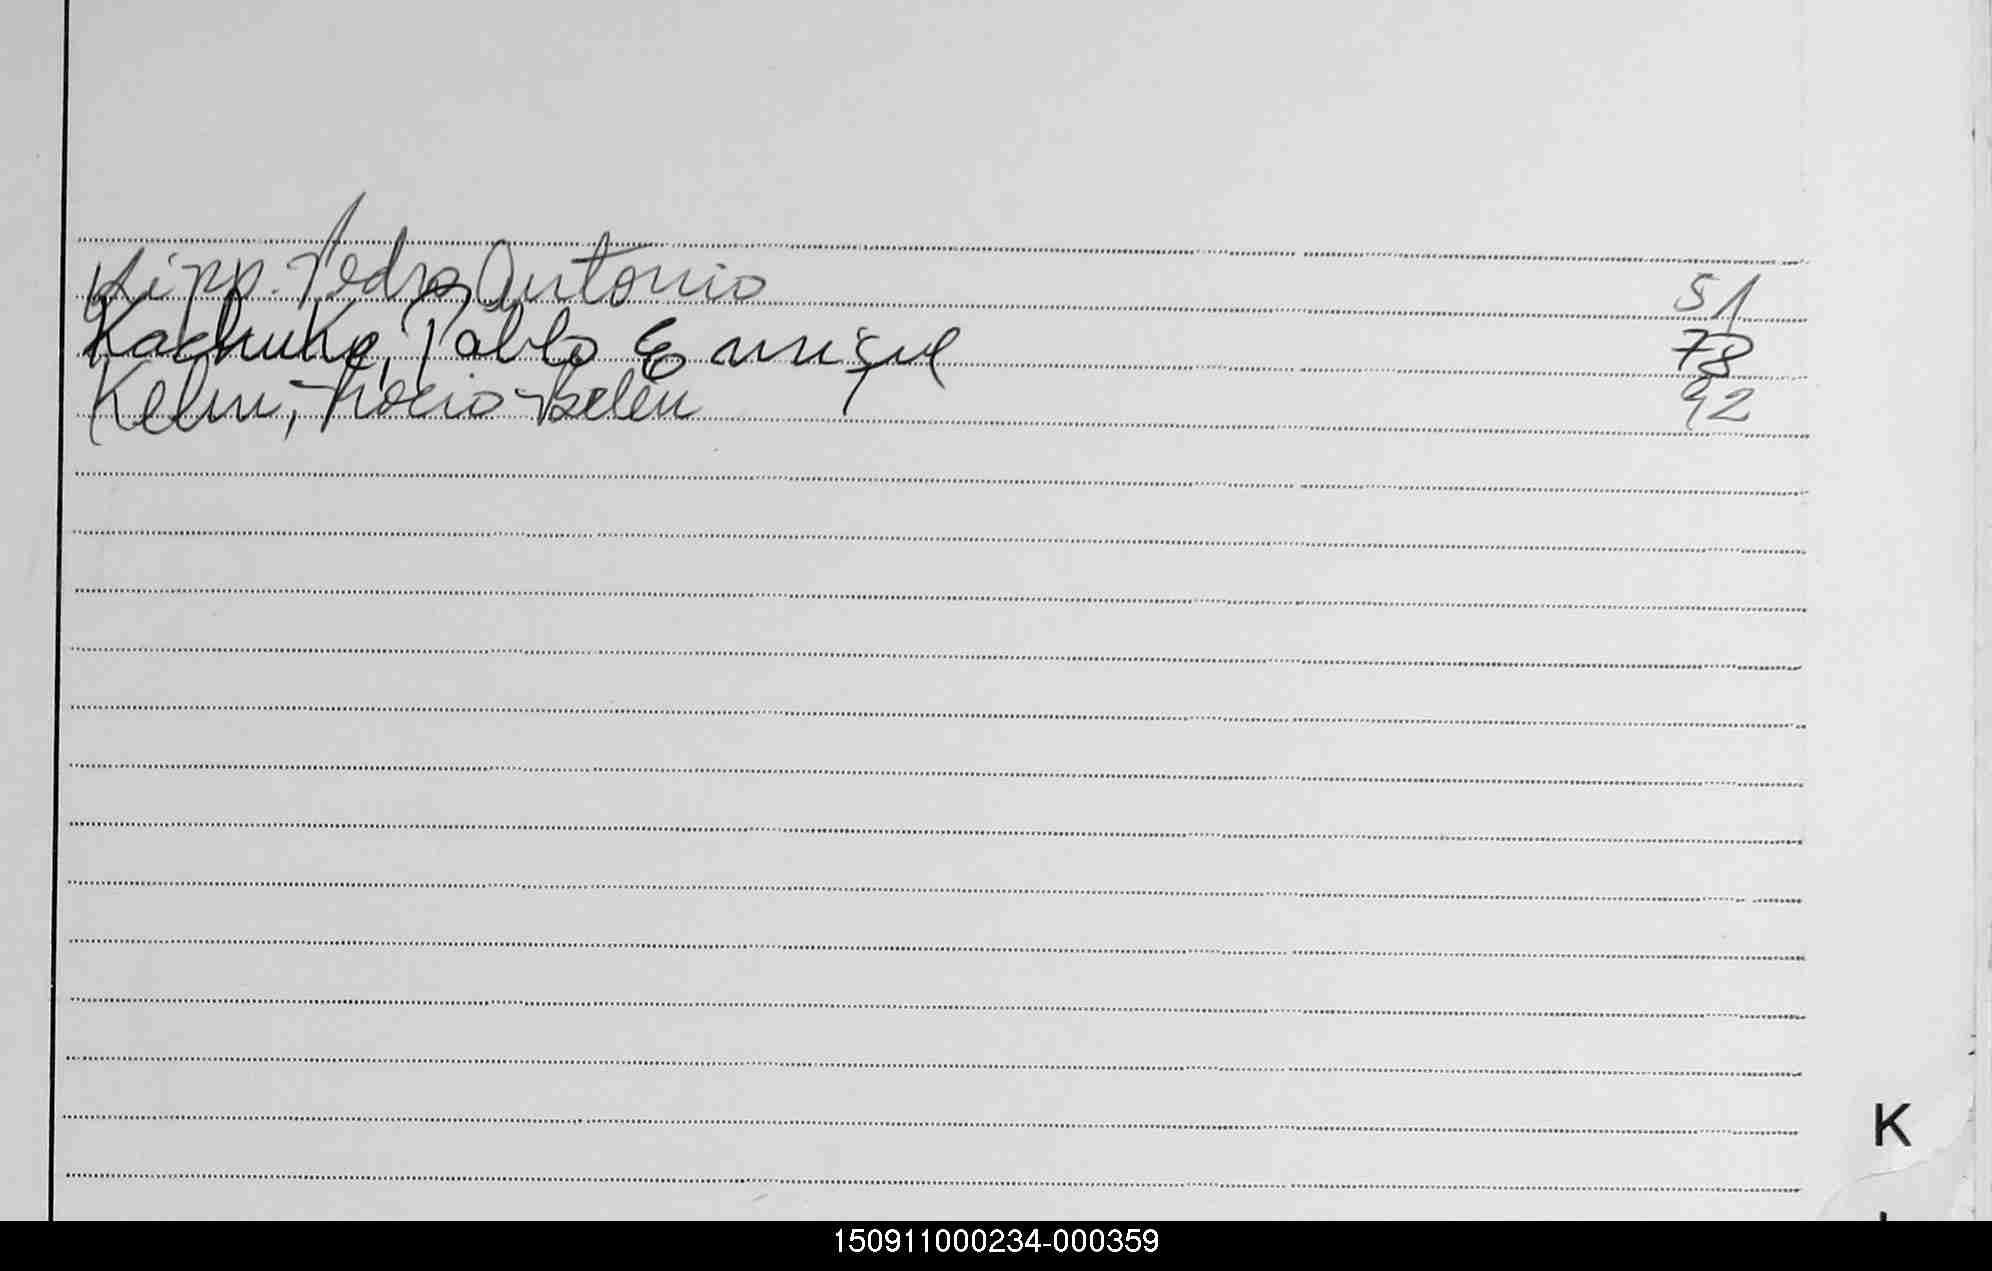 Kipp. Pedro Antonio 51
Kachuka, Pablo Enrique 78
Kelm, Rocio Belén 92
K
150911000234-000359